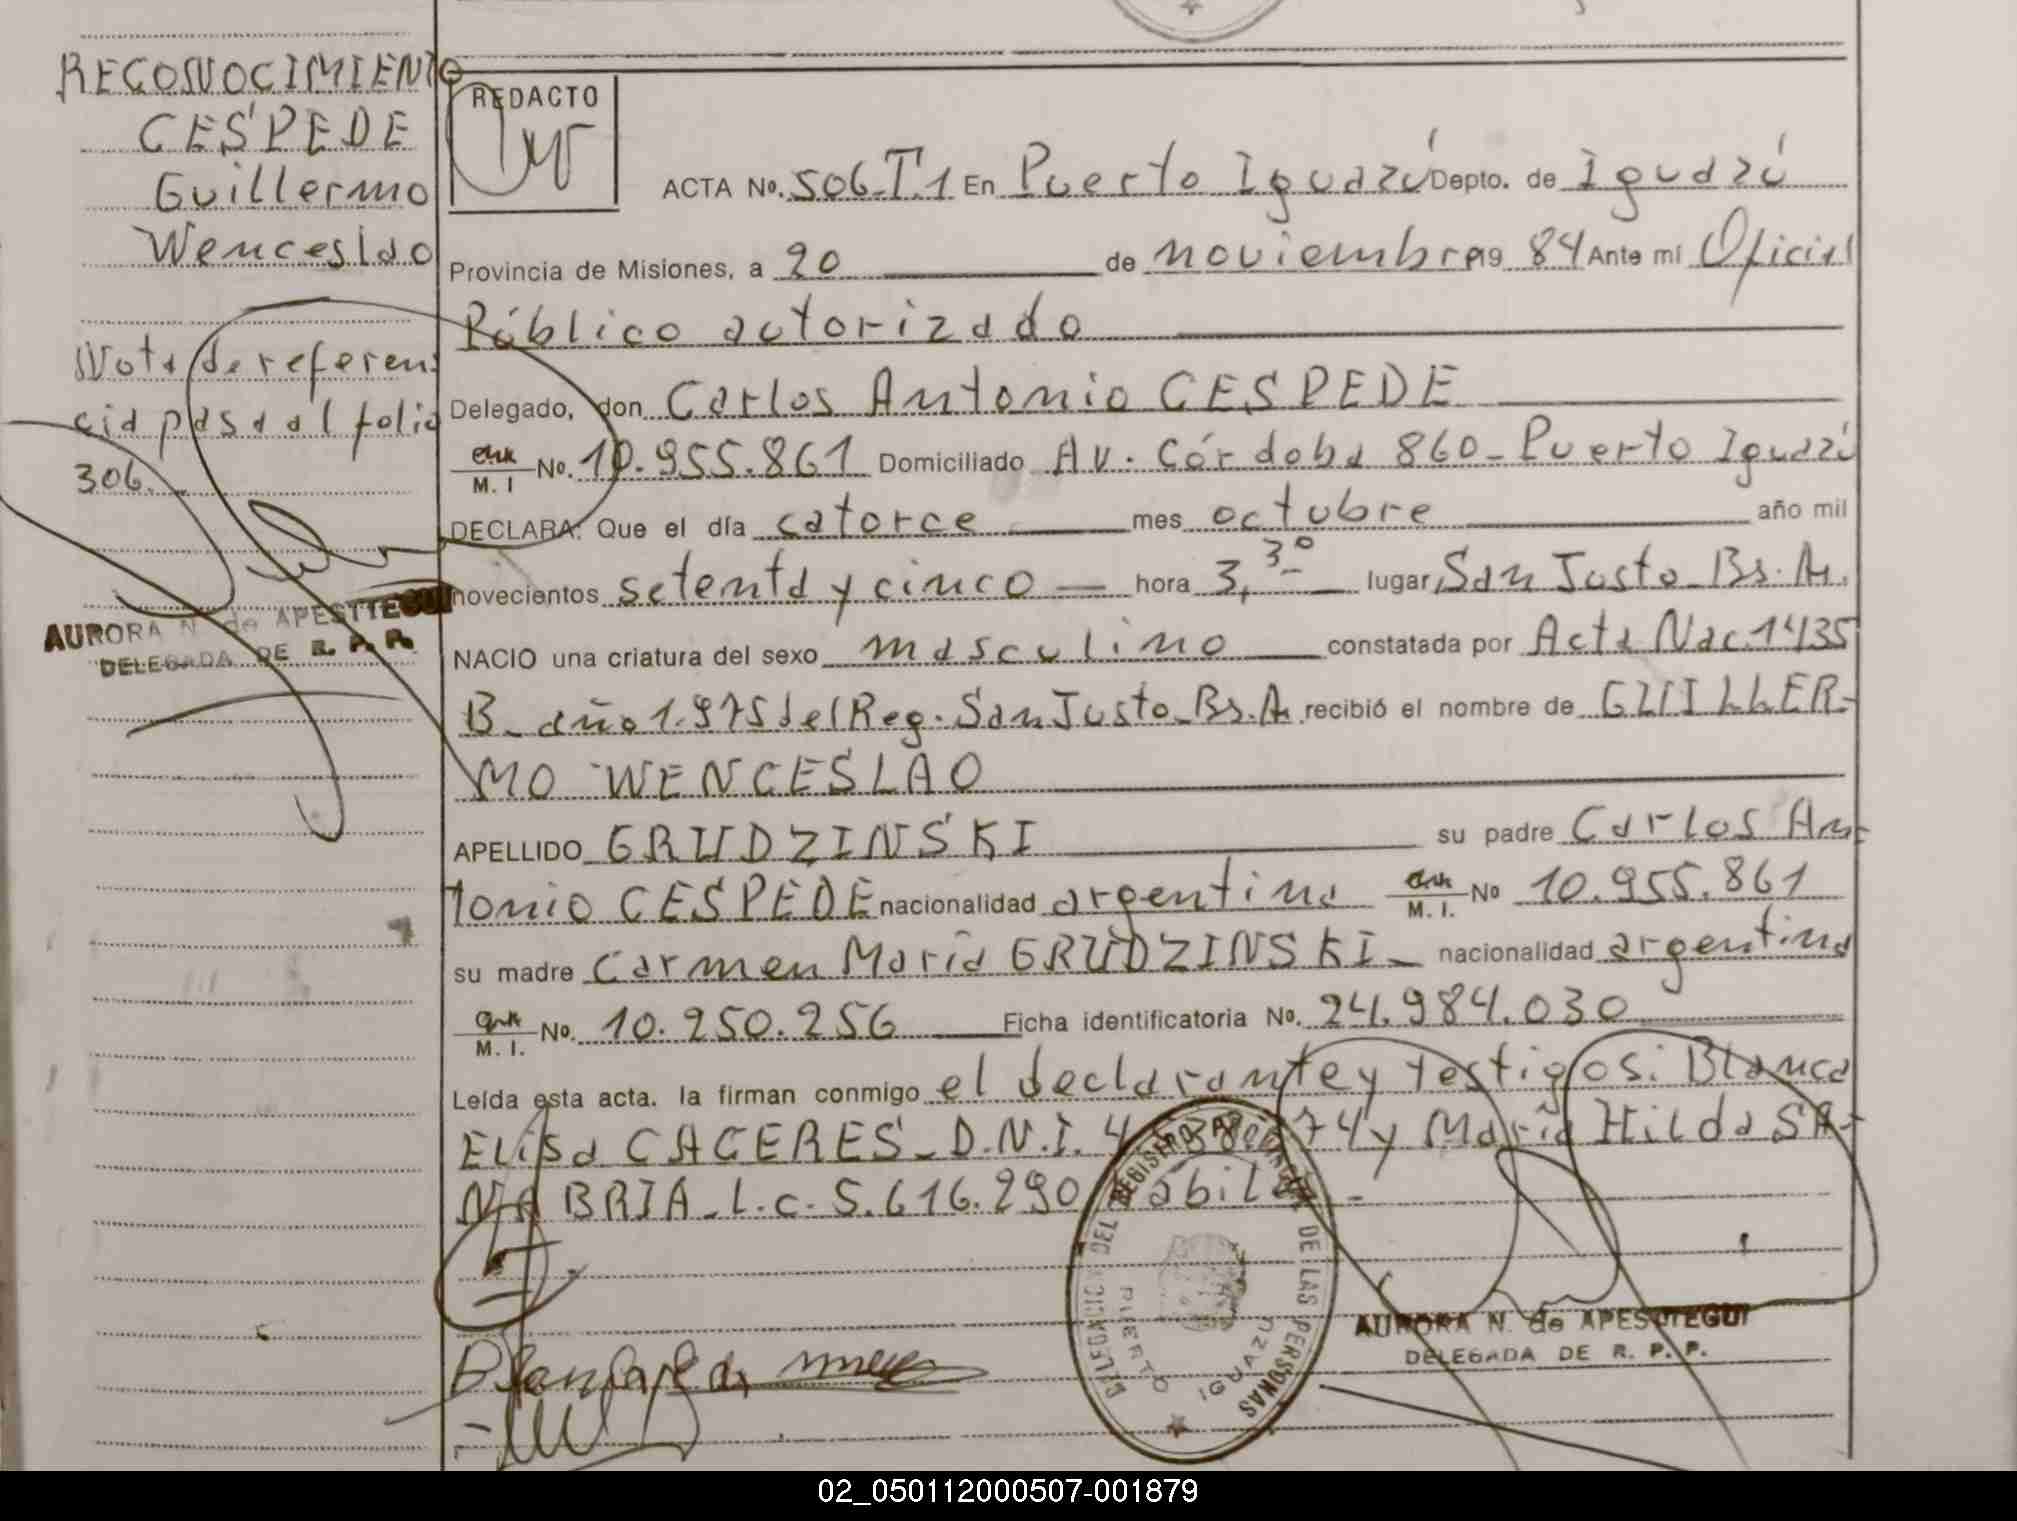 RECONOCIMIENTO
CESPEDE
Guillermo
Wenceslao
Nota de referen
cia pasa al folio
306.
AURORA N. de APESTTEGUI
DELEGADA DE R. P. P.
REDACTO
ACTA No. 506.T.1 En Puerto Iguazú Depto. de Iguazú
Provincia de Misiones, a 20 de noviembre 19 84 Ante mí Oficial
Público autorizado
Delegado, don Carlos Antonio CESPEDE
M. I No. 10.955.861 Domiciliado Av. Córdoba 860 - Puerto Iguazú
DECLARA: Que el día catorce mes octubre año mil
novecientos setenta y cinco hora 3,30 lugar San Justo - Bs. As.
NACIO una criatura del sexo masculino constatada por Acta Nac. 1435
B - año 1.975 del Reg. San Justo - Bs. As. recibió el nombre de GUILLER-
MO WENCESLAO
APELLIDO GRUDZINSKI su padre Carlos An-
tonio CESPEDE nacionalidad argentina M. I. No 10.955.861
su madre Carmen María GRUDZINSKI - nacionalidad argentina
M. I. No. 10.250.256 Ficha identificatoria No. 24.984.030
Leída esta acta. la firman conmigo el declarante y testigos: Blanca
Elisa CACERES - D.N.I. 4 74 y María Hilda SA-
NABRIA - L.C. 5.616.290
DELEGACION DEL REGISTRO PROVINCIAL DE LAS PERSONAS
PUERTO IGUAZU
AURORA N. de APESTTEGUI
DELEGADA DE R. P. P.
02_050112000507-001879